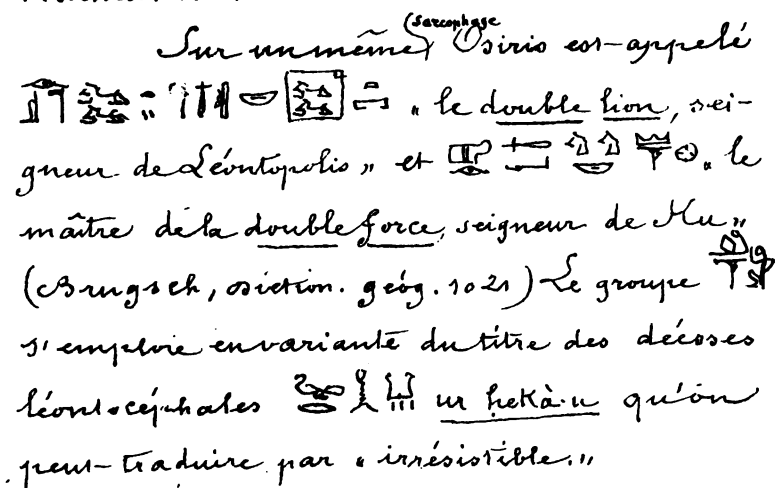 Sur un même sarcophage Osiris est appelé
« le double lion, sei-
gneur de Léontopolis » et « le
maître de la double force, seigneur de Hu »
(Brugsch, Diction. géog. 1021) Le groupe
s'emploie en variante du titre des déesses
léontocéphales ur hekà-u qu'on
peut traduire par « irrésistible. »